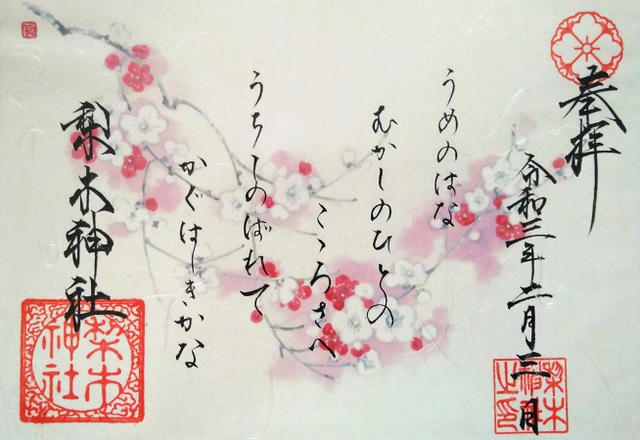 奉拝
令和三年二月三日
うめのはな
むかしのひとの
こゝろさへ
うちしのばれて
かぐはしきかな
梨木神社
梨木神社